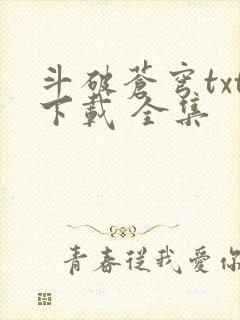 斗破蒼穹txt
下載 全集
青春從我愛你